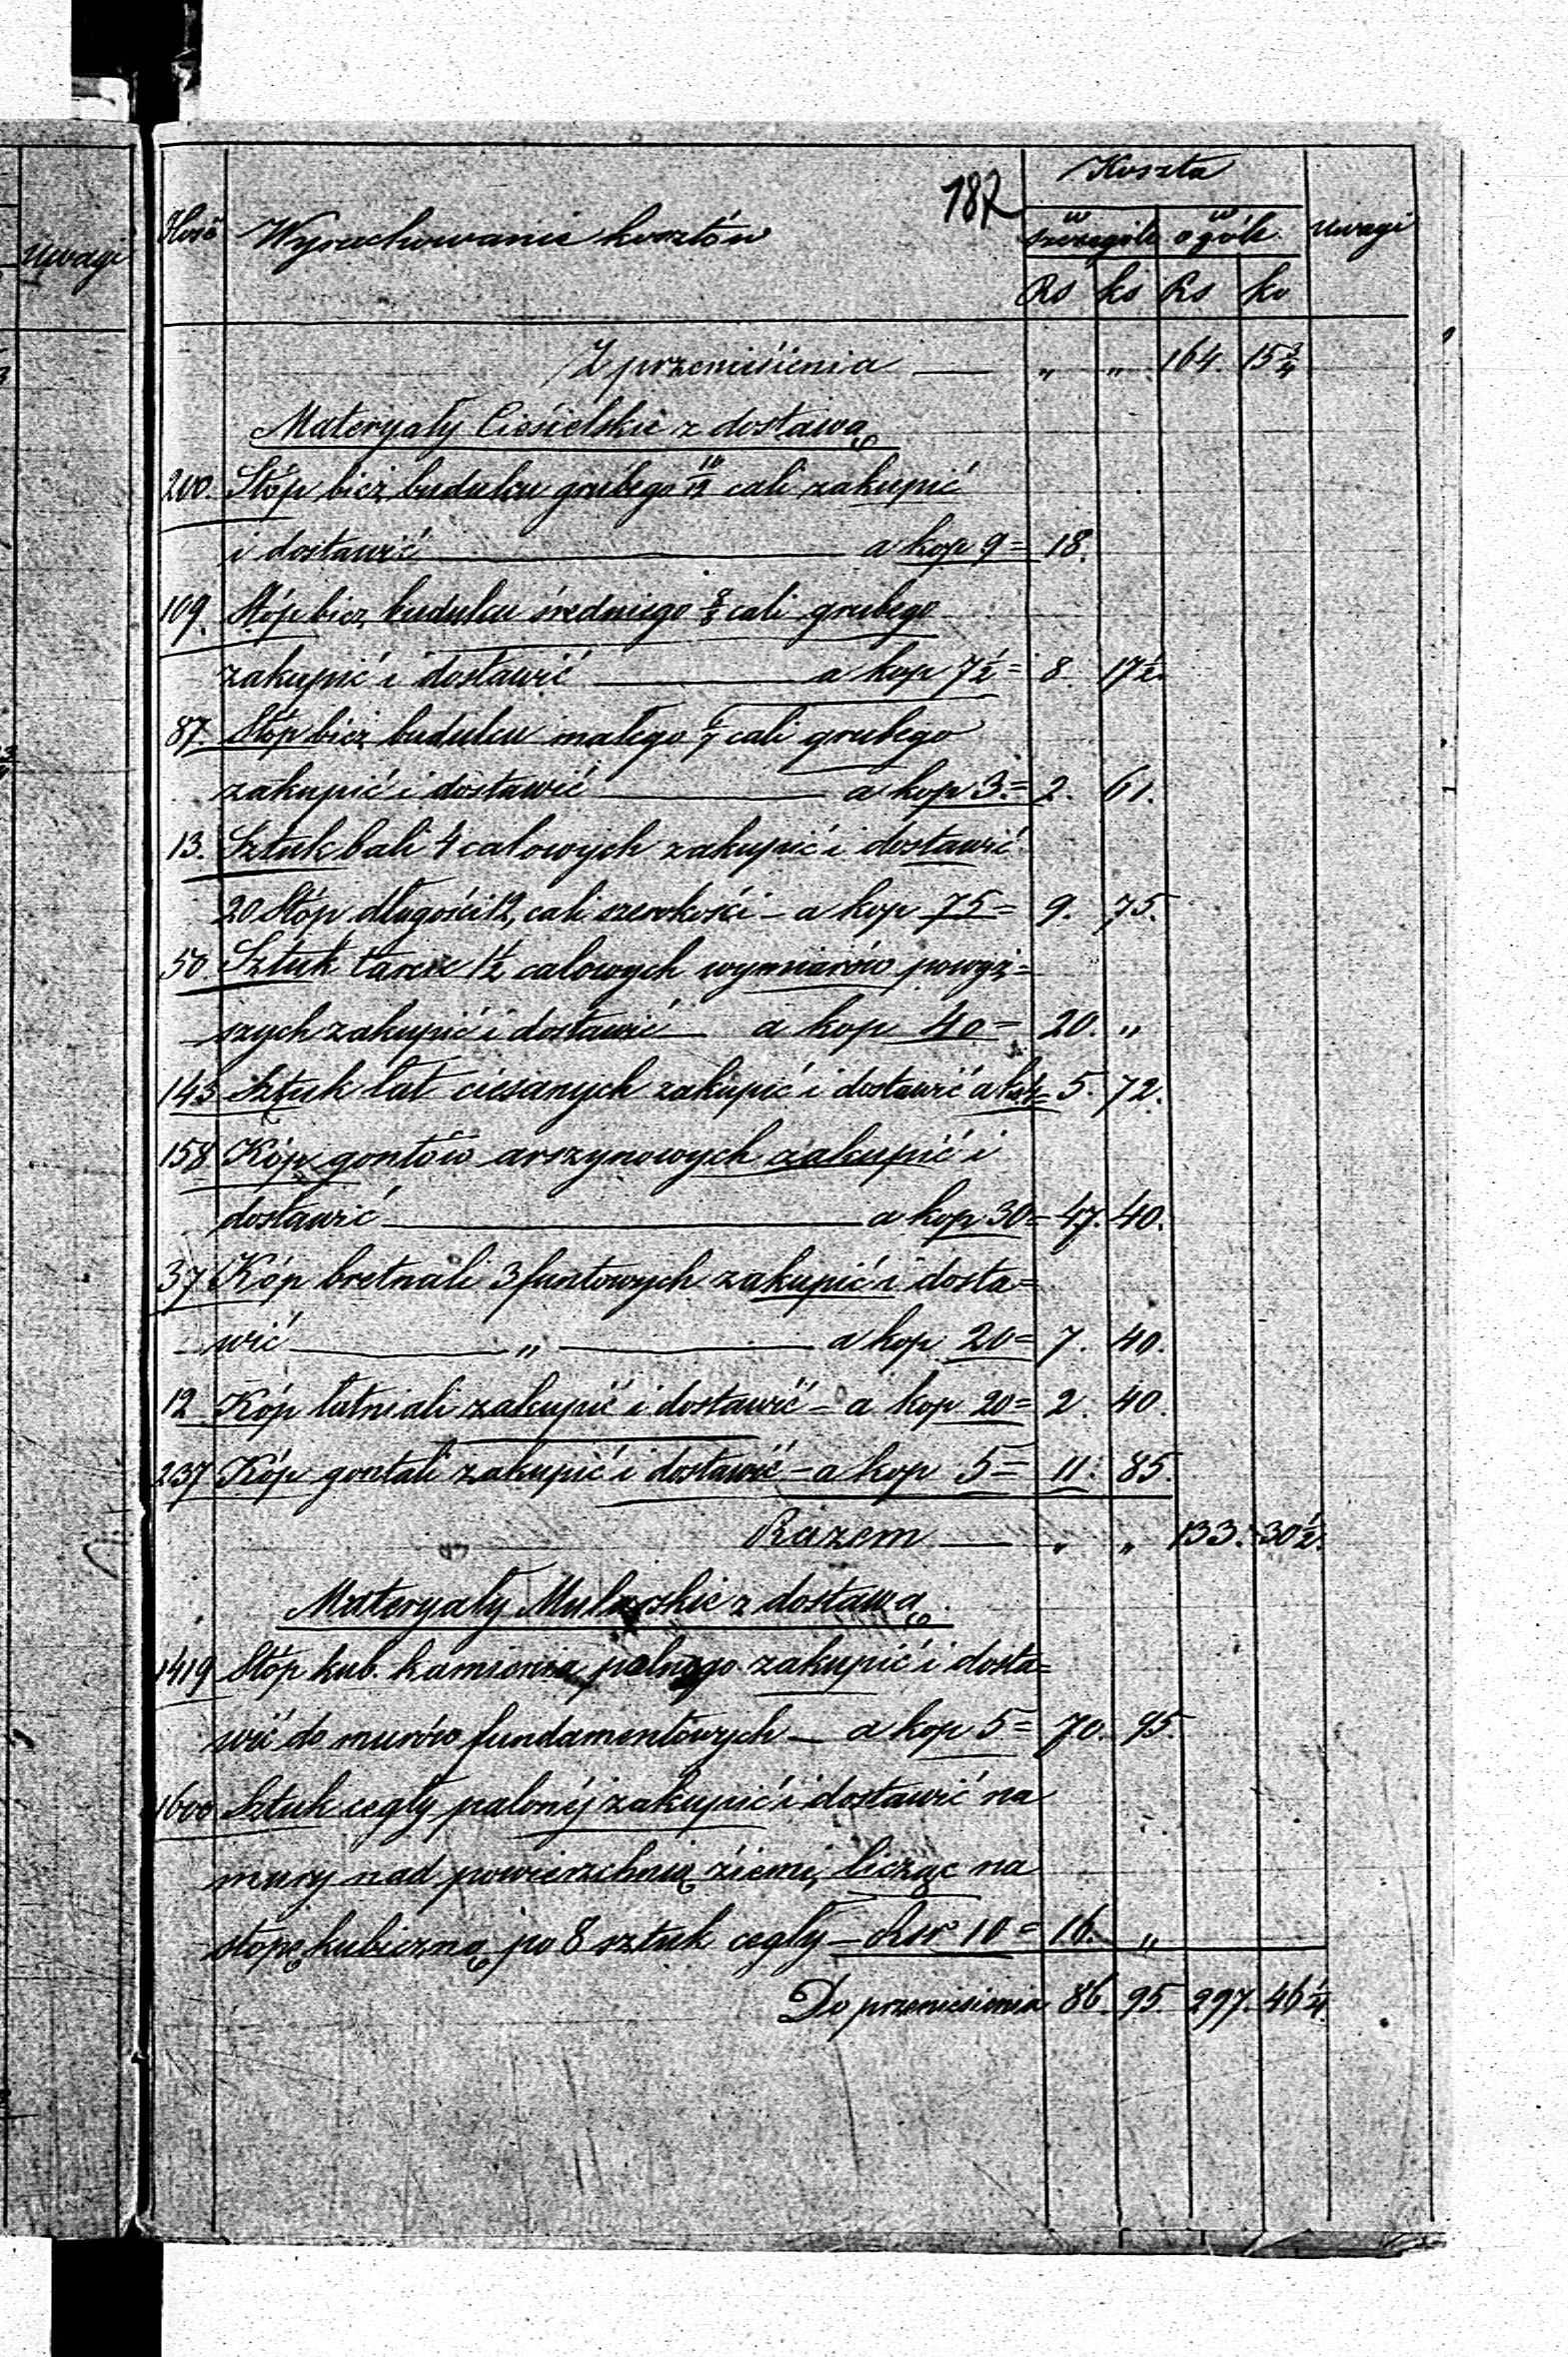 Uwagi
187
Koszta
Ilość Wyrachowanie kosztów w szczególe w ogóle Uwagi
Rs ks Rs ko
Z przeniesienia — „ „ 164. 15 3/4
Materyały Ciesielskie z dostawą
200. Stóp bież budulcu grubego 10/12 cali zakupić
i dostawić — a kop 9 = 18.
109. Stóp bież budulcu średniego cali grubego
zakupić i dostawić — a kop 7 1/2 = 8. 17 1/2.
87 Stóp bież budulcu małego cali grubego
zakupić i dostawić — a kop 3. = 2. 61.
13. Sztuk bali 4 calowych zakupić i dostawić
20 Stóp długości 12, cali szerokości — a kop 75 = 9. 75.
50 Sztuk tarcic 1 1/2 calowych wymiarów powyż=
szych zakupić i dostawić — a kop 40 = 20. „
143 Sztuk łat ciesanych zakupić i dostawić a k 4 = 5. 72.
158 Kóp gontów arszynowych zakupić i
dostawić — a kop 30 = 47. 40.
37 Kóp bretnali 3 funtowych zakupić i dosta=
wić — „ — a kop 20 = 7. 40.
12 Kóp łatniali zakupić i dostawić — a kop 20 = 2. 40.
237 Kóp gontali zakupić i dostawić — a kop 5 = 11. 85.
Razem — „ „ 133. 30 1/2.
Materyały Mularskie z dostawą
1419 Stóp kub. kamienia polnego zakupić i dosta=
wić do murów fundamentowych — a kop 5 = 70. 95.
1600 Sztuk cegły palonéj zakupić i dostawić na
mury nad powierzchnią ziemi, licząc na
stopę kubiczną po 8 sztuk cegły — Rsr 10 = 16. „
Do przeniesienia 86. 95 297. 46 1/4.